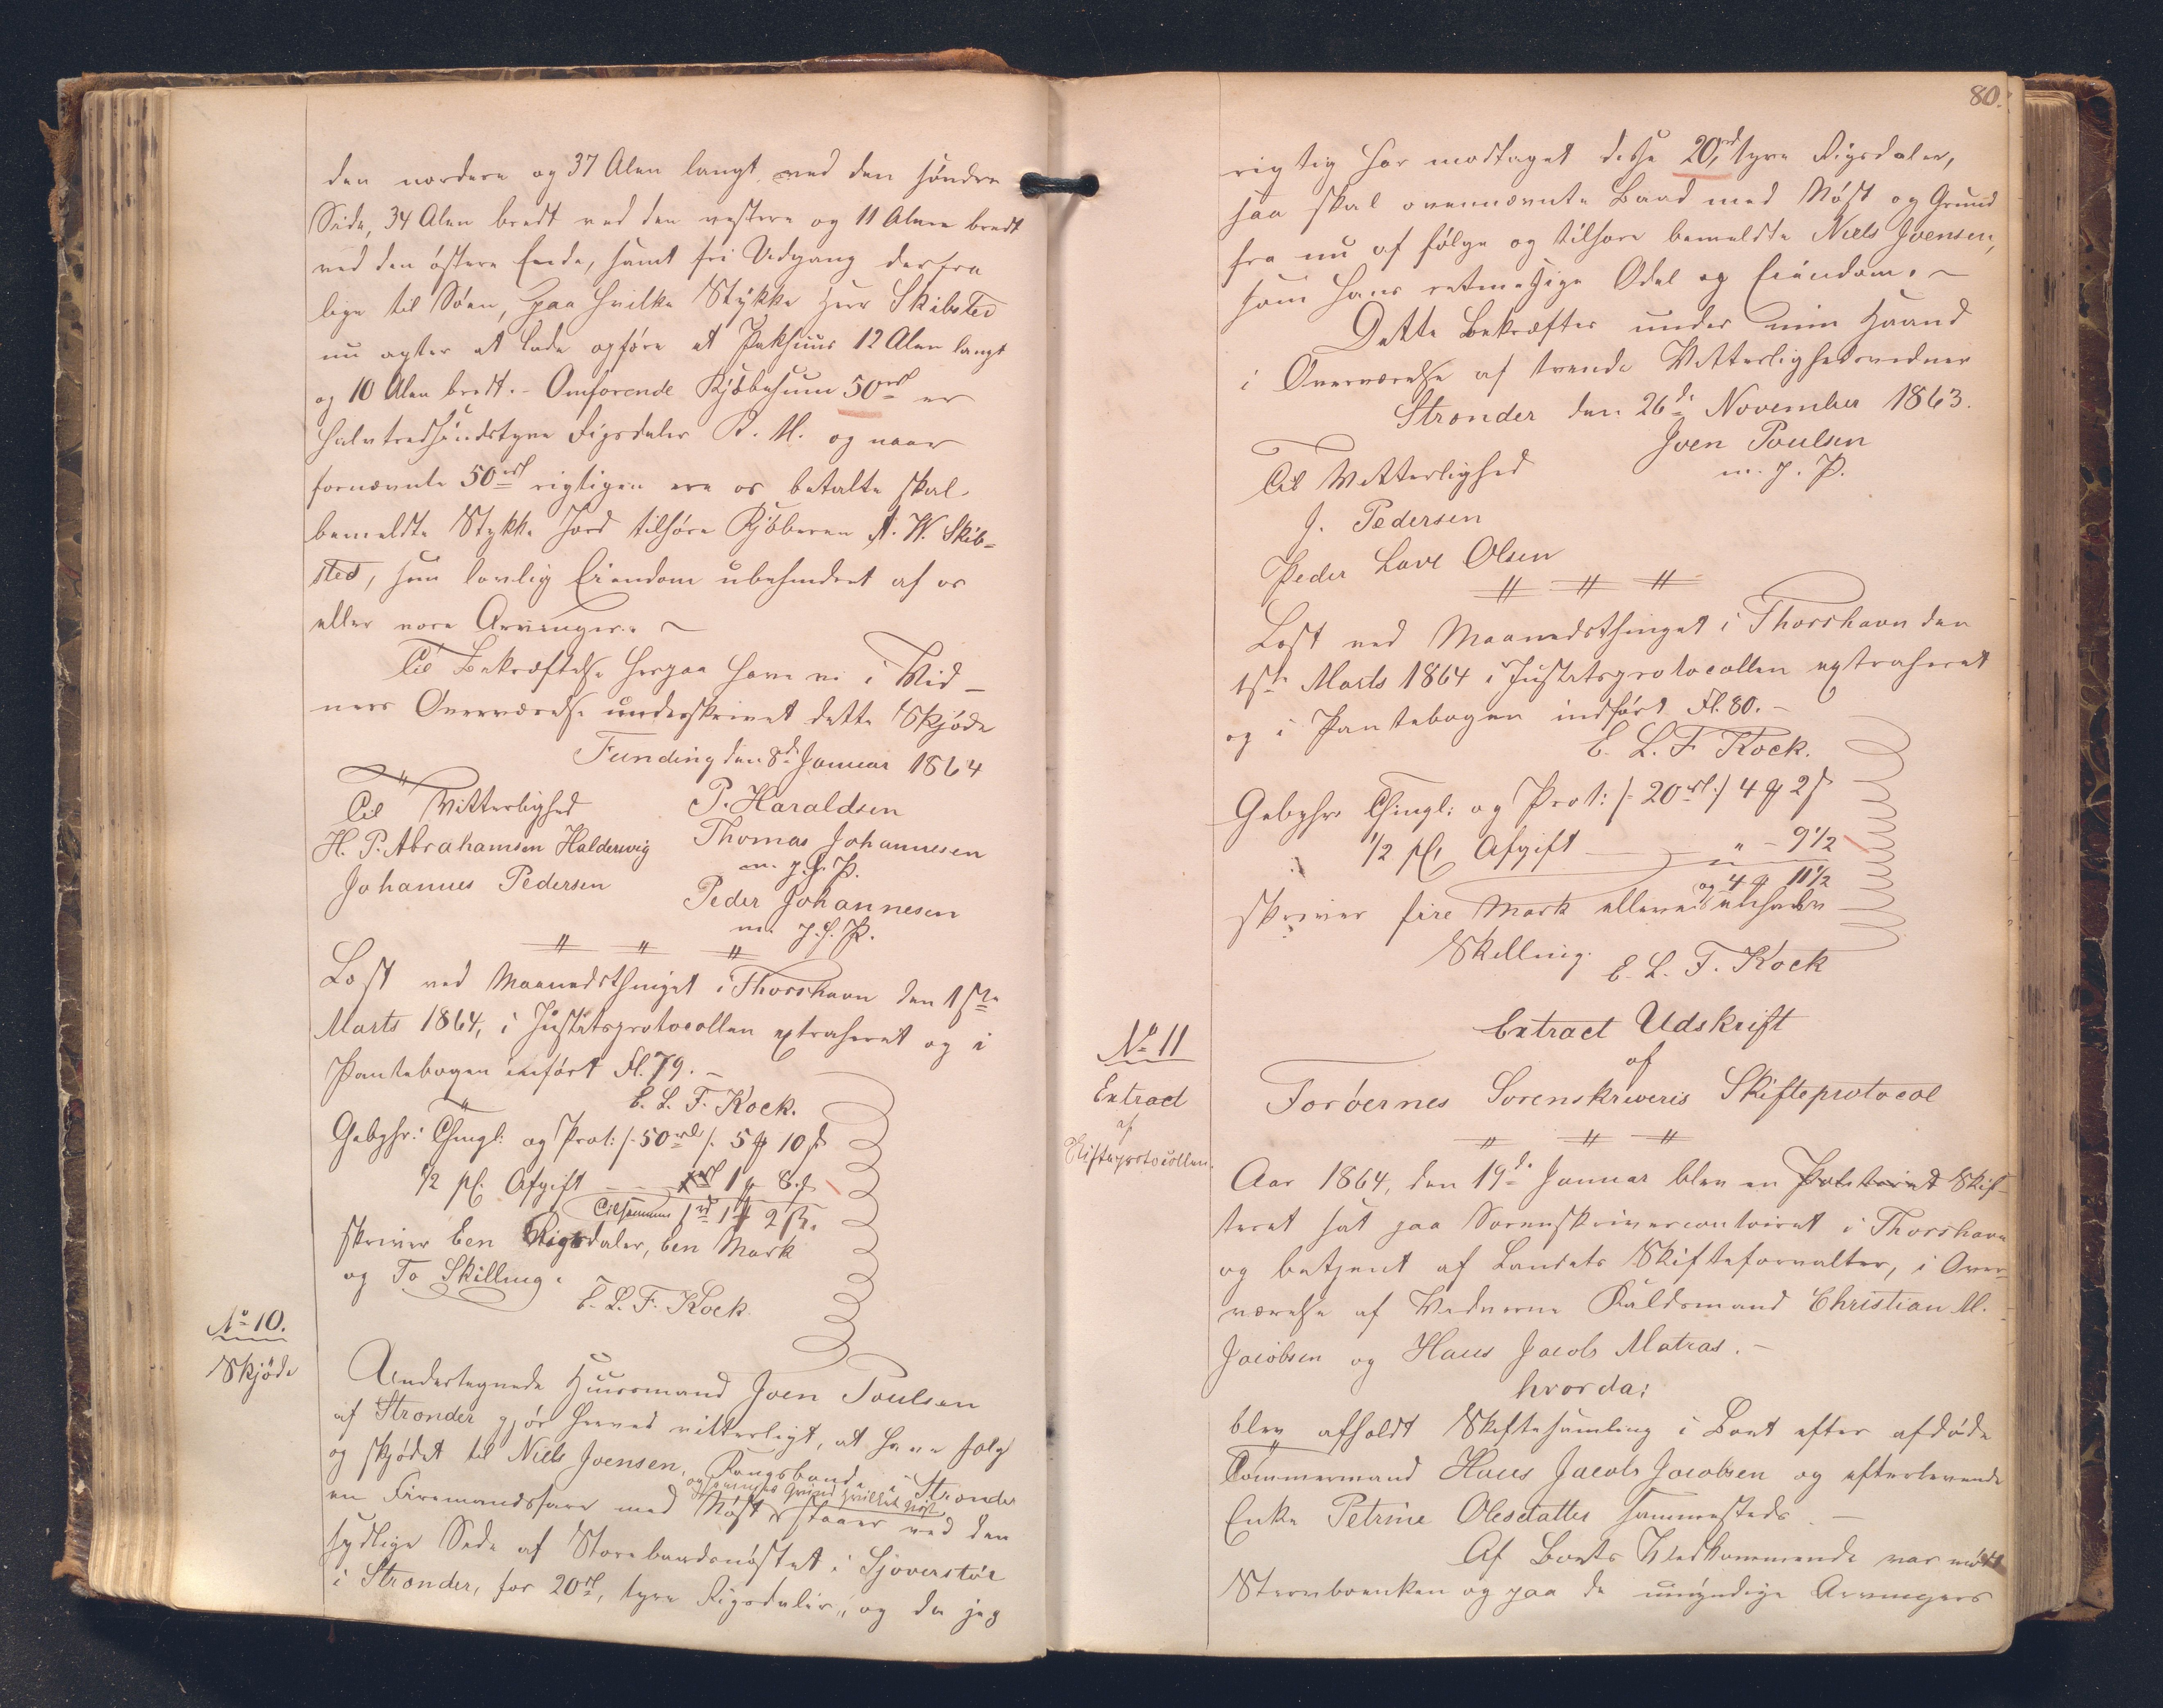 den nordere og 37 Alen langt ved den søndre
Side, 34 Alen bredt ved den vestere og 11 Alen bredt
ved den østere Ende, samt fri Udgang derfra
lige til Søen, paa hvilke Stykke Herr Skibsted
nu agter at lade opføre et Pakhuus 12 Alen langt
og 10 Alen bredt. - Omforende Kjøbesum 50 rd er
halvtredsindstyve Rigsdaler R. M. og naar
fornævnte 50 rd rigtigen ere os betalte skal
bemeldte Stykke Jord tilhøre Kjøberen A. W. Skib-
sted, som lovlig Eiendom ubehindret af os
eller vore Arvinger. ~
Til Bekræftelse herpaa have vi i Vid-
ners Overværelse underskrivet dette Skjøde
Funding den 8d Januar 1864
Til Vitterlighed P. Haraldsen
H. P. Abrahamsen Halderwig Thomas Johannesen
m. f. P.
Johannes Pedersen Peder Johannesen
m. f. P.
Læst ved Maanedsthinget i Thorshavn den 1ste
Marts 1864, i Justitsprotocollen extraheret og i
Pantebogen inført Fl. 79. -
E. L. F. Kock.
Gebyhr: Thingl: og Prot: /: 50 rd /: 5 ℳ 10 ß
1/2 pC. Afgift 1 ℳ 8 ß
Tilsammen 1 rd 1 ℳ 2 ß.
skriver Een Rigsdaler, Een Mark
og To Skilling.
E. L. F. Kock.
No 10.
Skjøde
Undertegnede Huusmand Joen Poulsen
af Strønder gjør herved vitterligt, at have solgt
og skjødet til Niels Joensen, Kongsbonde i Strønder
og sammes Grund hvilket Nøst
en Firemandsfare med Nøst staaer ved den
sydlige Side af Storebaadsnøstet i Sjøverstøe
i Strønder, for 20 rd, tyve Rigsdaler, og da jeg
80.
rigtig har modtaget disse 20, rd tyve Rigsdaler,
saa skal ovennævnte Baad med Nøst og Grund
fra nu af følge og tilhøre bemeldte Niels Joensen,
som hans retmæssige Odel og Eiendom. ~
Dette Bekræftes under min Haand
i Overværelse af tvende Vitterlighedsvidner
Strønder den 26d November 1863.
Joen Poulsen
m. f. P.
Til Vitterlighed
J. Pedersen
Peder Lave Olsen
Læst ved Maanedsthinget i Thorshavn den
1ste Marts 1864 i Justitsprotocollen extraheret
og i Pantebogen indført Fl. 80. -
E. L. F. Kock.
Gebyhr Thingl: og Prot: /: 20 rd :/ 4 ℳ 2 ß
1/2 pC. Afgift " - 9 1/2
4 ℳ 11 1/2
skriver fire Mark elleve og en halv
Skilling.
E. L. F. Kock
No 11
Extract
af
Skifteprotocollen.
Extract Udskrift
af
Forøernes Sorenskriveris Skifteprotocol
Aar 1864, den 19de Januar blev en Politiret Skif-
teret sat paa Sorenskrivercontoiret i Thorshavn
og betjent af Landets Skifteforvalter, i Over-
værelse af Vidnerne Raadsmand Christian M.
Jacobsen og Hans Jacob Matras. -
hvorda:
blev afholdt Skiftesamling i Boet efter afdøde
Tømmermand Hans Jacob Jacobsen og efterlevende
Enke Petrine Olesdatter sammesteds. -
Af Boets Vedkommende var mødt
Stervboenken og paa de umyndige Arvingers